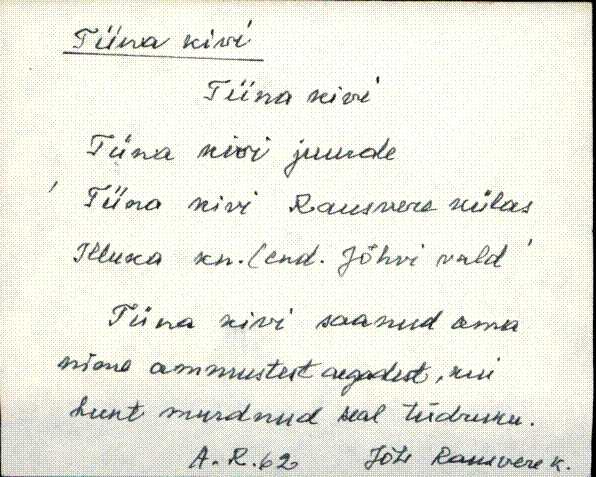 Tiina kivi
Tiina kivi
Tiina kivi juurde
Tiina kivi Rausvere külas
Illuka kn. (end. Jõhvi vald
Tiina kivi saanud oma
nime ammustest aegadest, kui
hunt murdnud seal tüdruku.
A. R. 62 Jõh Rausvere k.